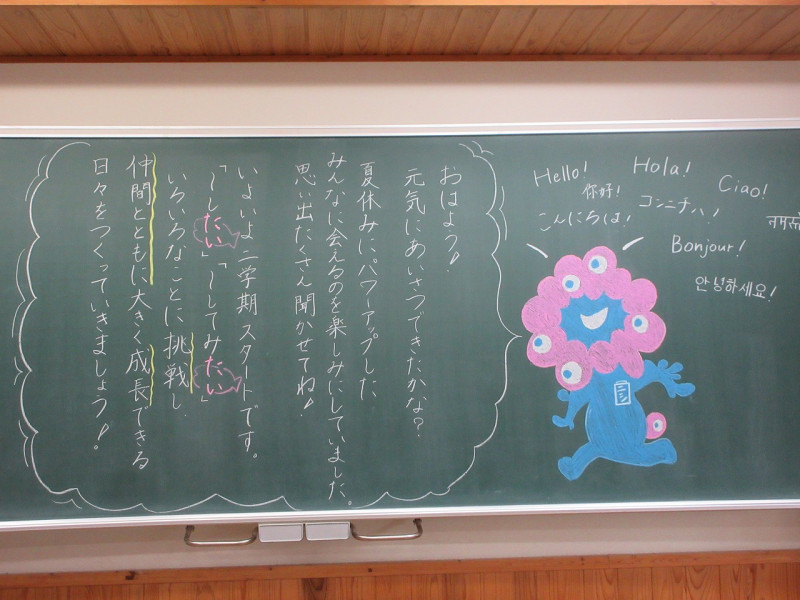 おはよう!
元気にあいさつできたかな?
夏休みにパワーアップした
みんなに会えるのを楽しみにしていました。
思い出たくさん聞かせてね!
いよいよ二学期スタートです。
「〜したい」「〜してみたい」
いろいろなことに挑戦し、
仲間とともに大きく成長できる
日々をつくっていきましょう!
Hello!
Hola!
Ciao!
你好!
コンニチハ!
こんにちは!
Bonjour!
안녕하세요!